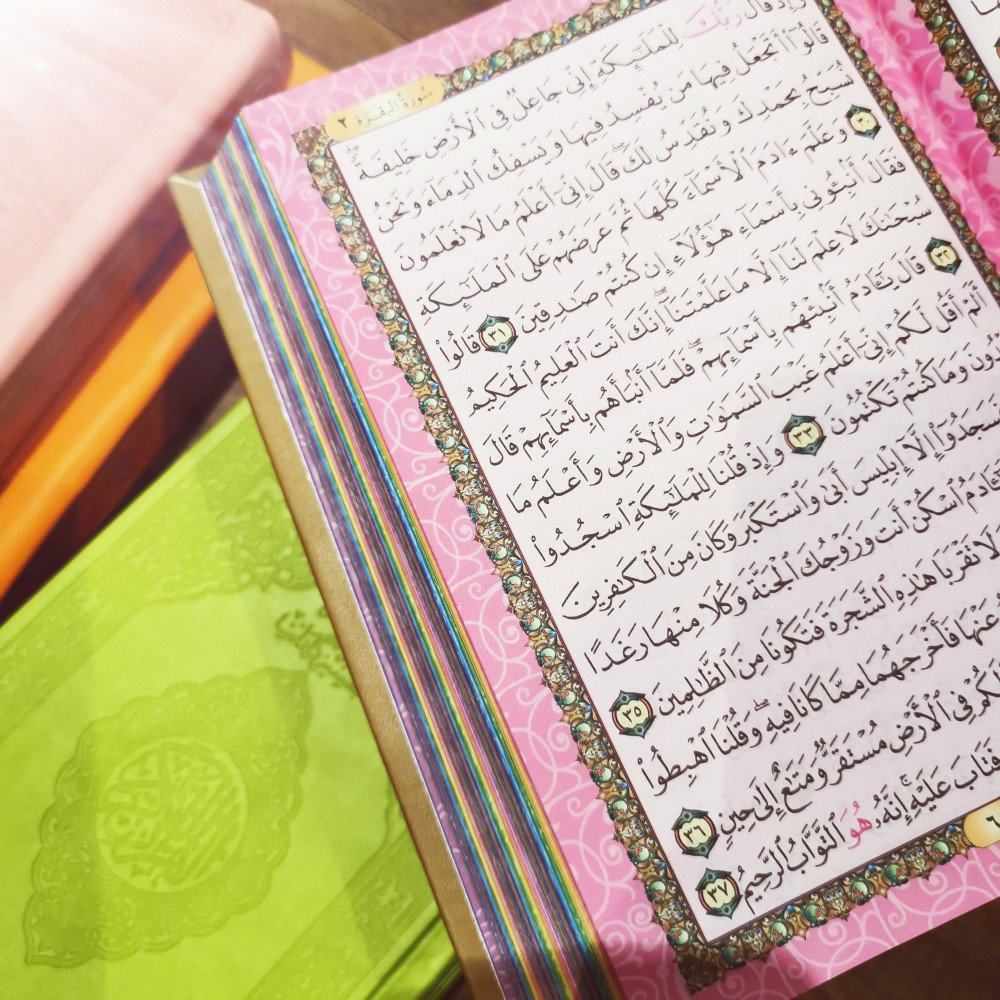 سُورَةُ الْبَقَرَةِ ٢
وَإِذْ قَالَ رَبُّكَ لِلْمَلَٰٓئِكَةِ إِنِّى جَاعِلٌ فِى ٱلْأَرْضِ خَلِيفَةً ۖ
قَالُوٓا۟ أَتَجْعَلُ فِيهَا مَن يُفْسِدُ فِيهَا وَيَسْفِكُ ٱلدِّمَآءَ وَنَحْنُ
نُسَبِّحُ بِحَمْدِكَ وَنُقَدِّسُ لَكَ ۖ قَالَ إِنِّىٓ أَعْلَمُ مَا لَا تَعْلَمُونَ
٣٠ وَعَلَّمَ ءَادَمَ ٱلْأَسْمَآءَ كُلَّهَا ثُمَّ عَرَضَهُمْ عَلَى ٱلْمَلَٰٓئِكَةِ
فَقَالَ أَنۢبِـُٔونِى بِأَسْمَآءِ هَٰٓؤُلَآءِ إِن كُنتُمْ صَٰدِقِينَ ٣١ قَالُوا۟
سُبْحَٰنَكَ لَا عِلْمَ لَنَآ إِلَّا مَا عَلَّمْتَنَآ ۖ إِنَّكَ أَنتَ ٱلْعَلِيمُ ٱلْحَكِيمُ
٣٢ قَالَ يَٰٓـَٔادَمُ أَنۢبِئْهُم بِأَسْمَآئِهِمْ ۖ فَلَمَّآ أَنۢبَأَهُم بِأَسْمَآئِهِمْ قَالَ
أَلَمْ أَقُل لَّكُمْ إِنِّىٓ أَعْلَمُ غَيْبَ ٱلسَّمَٰوَٰتِ وَٱلْأَرْضِ وَأَعْلَمُ مَا
وَمَا كُنتُمْ تَكْتُمُونَ ٣٣ وَإِذْ قُلْنَا لِلْمَلَٰٓئِكَةِ ٱسْجُدُوا۟
سَجَدُوٓا۟ إِلَّآ إِبْلِيسَ أَبَىٰ وَٱسْتَكْبَرَ وَكَانَ مِنَ ٱلْكَٰفِرِينَ
ـَٔادَمُ ٱسْكُنْ أَنتَ وَزَوْجُكَ ٱلْجَنَّةَ وَكُلَا مِنْهَا رَغَدًا
لَا تَقْرَبَا هَٰذِهِ ٱلشَّجَرَةَ فَتَكُونَا مِنَ ٱلظَّٰلِمِينَ ٣٥
عَنْهَا فَأَخْرَجَهُمَا مِمَّا كَانَا فِيهِ ۖ وَقُلْنَا ٱهْبِطُوا۟
لَكُمْ فِى ٱلْأَرْضِ مُسْتَقَرٌّ وَمَتَٰعٌ إِلَىٰ حِينٍ ٣٦
فَتَابَ عَلَيْهِ ۚ إِنَّهُۥ هُوَ ٱلتَّوَّابُ ٱلرَّحِيمُ ٣٧
٦